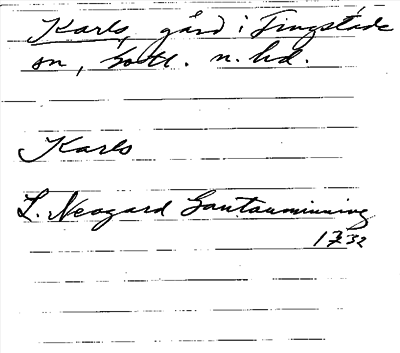 Karls, gård i Tingstäde
sn, Gotl. n. hd.
Karls
L. Neogard Gautauminning
1732